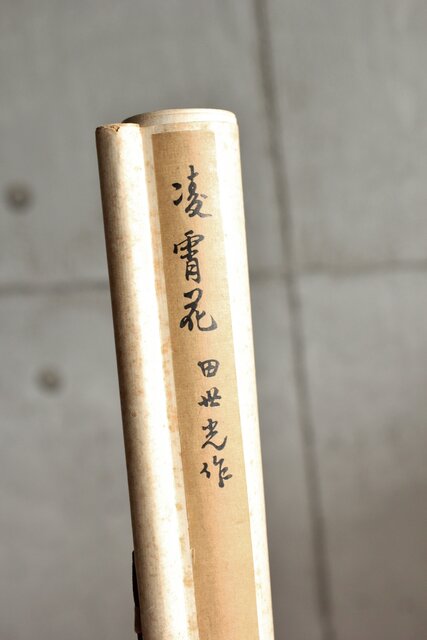 凌霄花 田世光作